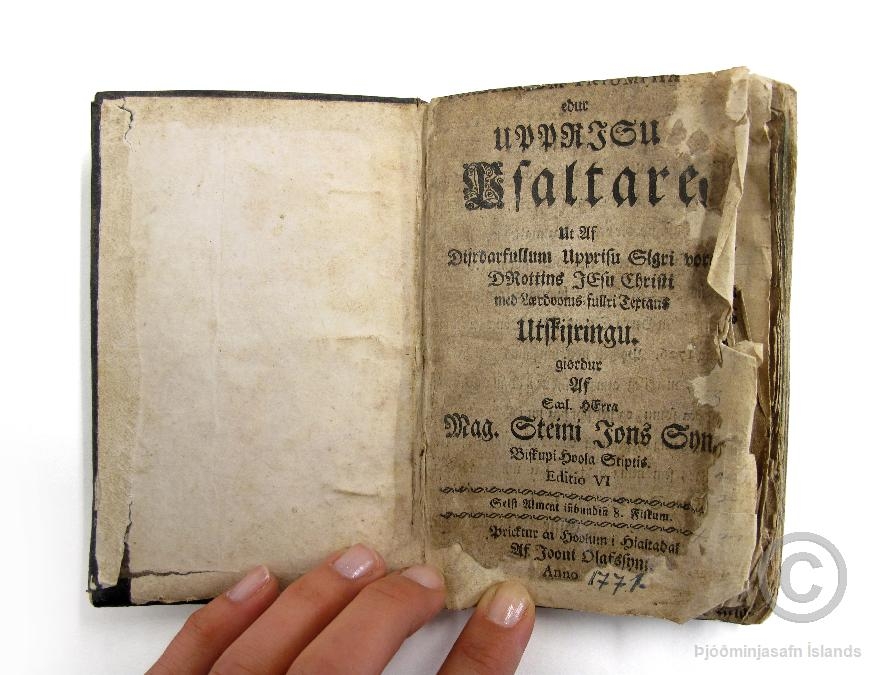 TRIUMPHA
edur
UPPRISU
Psaltare
Ut Af
Dijrdarfullum Upprisu Sigri vors
DRottins JEsu Christi
med Lærdooms-fullri Textans
Utskijringu.
giørdur
Af
Sæl. HErra
Mag. Steini Jons Syni
Biskupi Hoola Stiptis.
Editio VI
Selst Alment iñbundiñ 8. Fiskum.
Pricktur ai Hoolum i Hialtadal
Af Jooni Olafssyni
Anno 1771.
©
Þjóðminjasafn Íslands